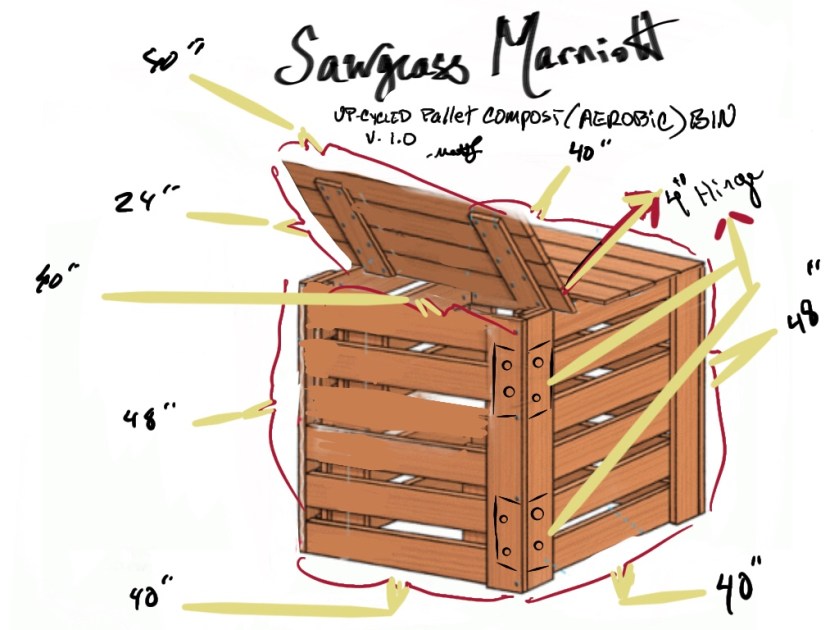 Sawgrass Marriott
UP-CYCLED Pallet COMPOST (AEROBIC) BIN
V. 1.0
40"
40"
4" Hinge
24"
40"
48"
48"
40"
40"